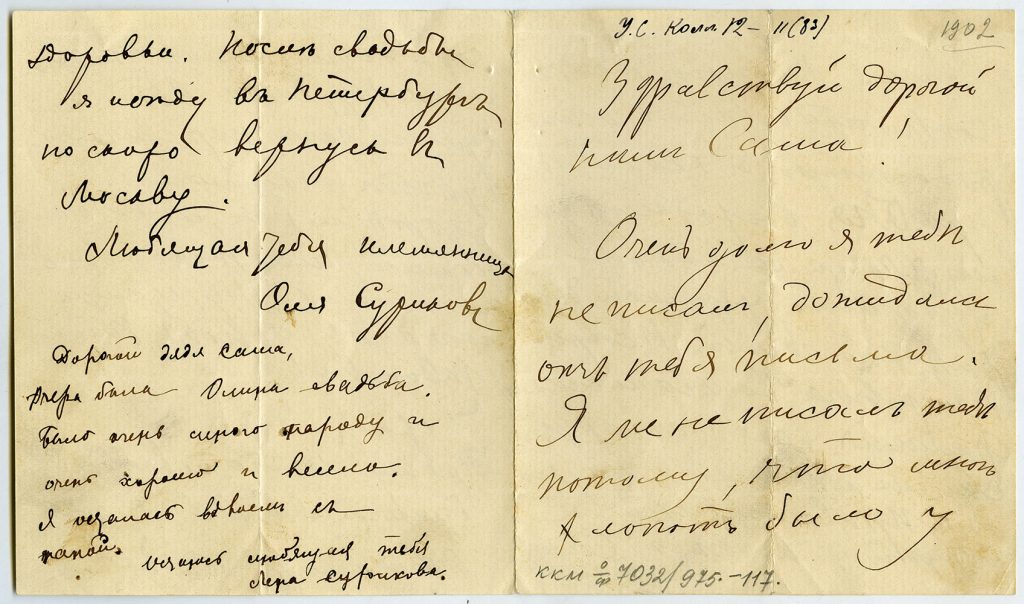 здоровы. Послѣ свадьбы
я поѣду въ Петербургъ
но скоро вернусь въ
Москву.
Любящая тебя племянница
Оля Сурикова
Дорогой дядя Саша,
Вчера была Олина свадьба.
Было очень много народу и
очень хорошо и весело.
Я осталась вдвоемъ съ
папой. Остаюсь любящая тебя
Лена Сурикова.
У.С. Колл 12 – 11 (83)
1902
Здравствуй дорогой
нашъ Саша!
Очень долго я тебѣ
не писалъ, дожидался
отъ тебя письма.
Я не писалъ тебѣ
потому, что много
хлопотъ было у
ККМ о/ф 7032/975.-117.